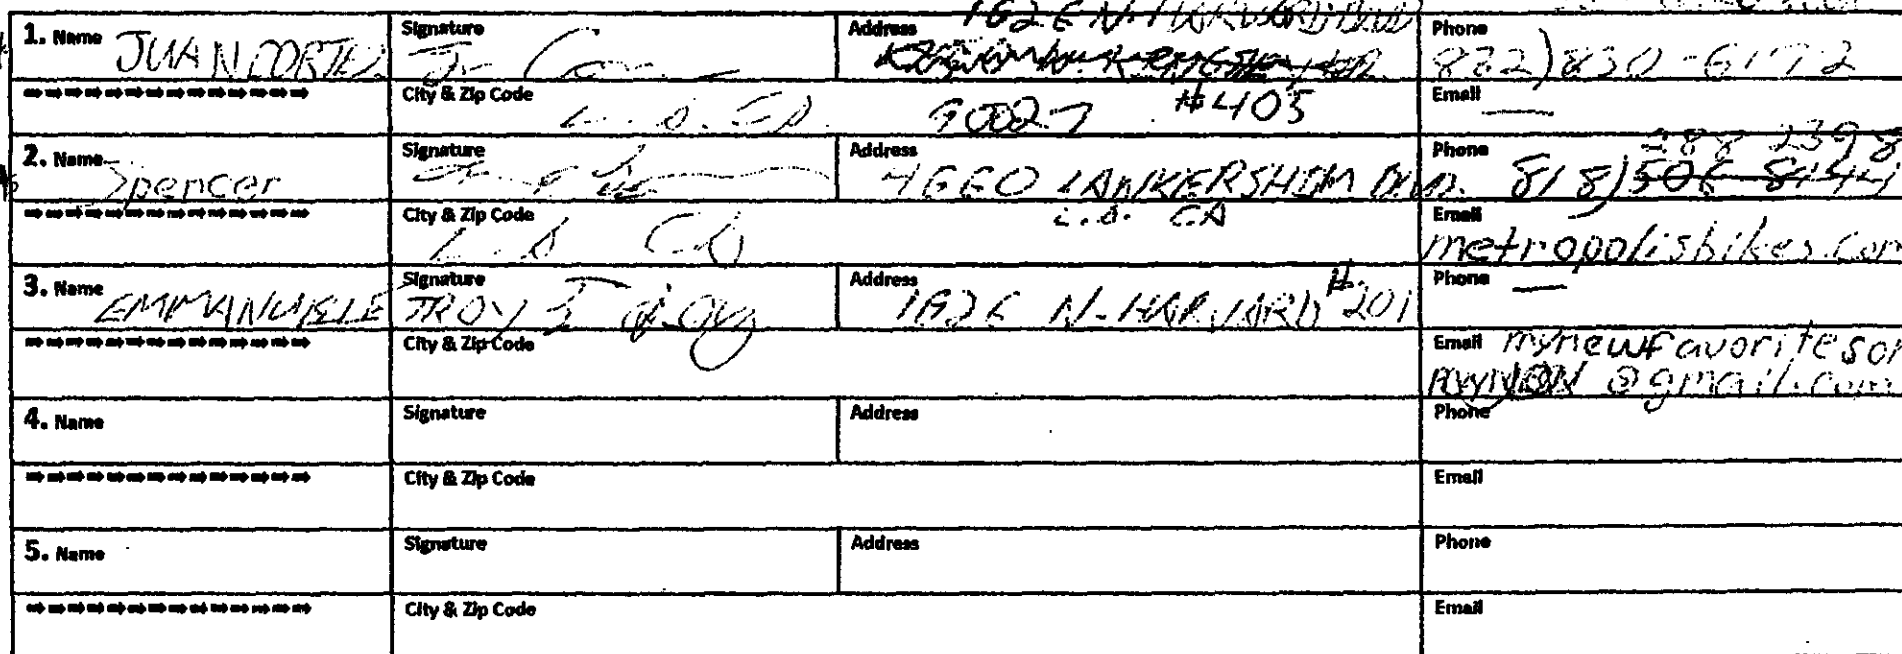 1626 N. HARVARD Blvd
1. Name JUAN CORTEZ Signature Address Phone 832)830-6172
City & Zip Code L.A. CA. 90027 #405 Email —
288 2398
2. Name Spencer Signature Address 4660 LANKERSHIM Blvd. Phone 818)506-8144
L.A. CA
City & Zip Code L.A CA Email metropolisbikes.com
3. Name EMMANUELE TROY Signature Address 1626 N. HARVARD #201 Phone —
City & Zip Code Email mynewfavoriteson
@gmail.com
4. Name Signature Address Phone
City & Zip Code Email
5. Name Signature Address Phone
City & Zip Code Email